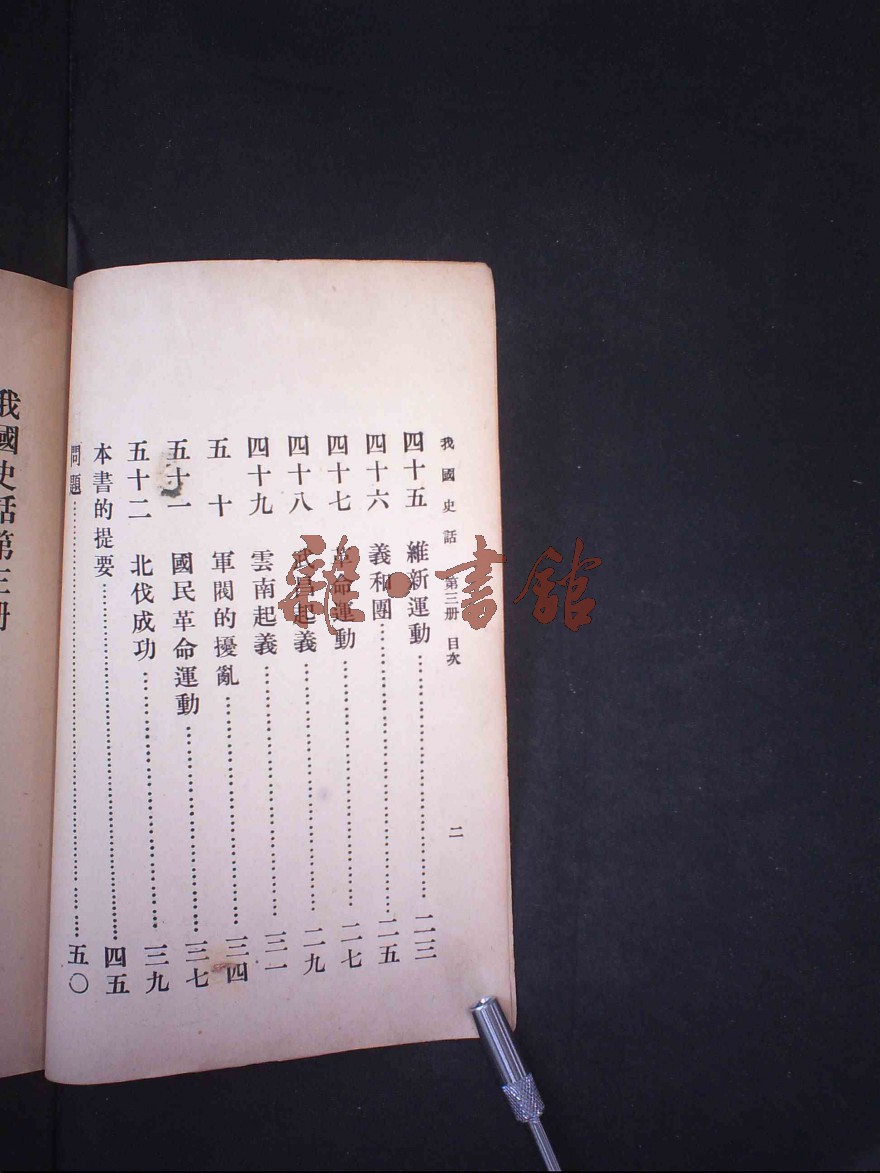 我國史話 第三册 目次 二
四十五 維新運動……二三
四十六 義和團……二五
四十七 革命運動……二七
四十八 武昌起義……二九
四十九 雲南起義……三一
五十 軍閥的擾亂……三四
五十一 國民革命運動……三七
五十二 北伐成功……三九
本書的提要……四五
問題……五〇
我國史話第三册
龍·書館